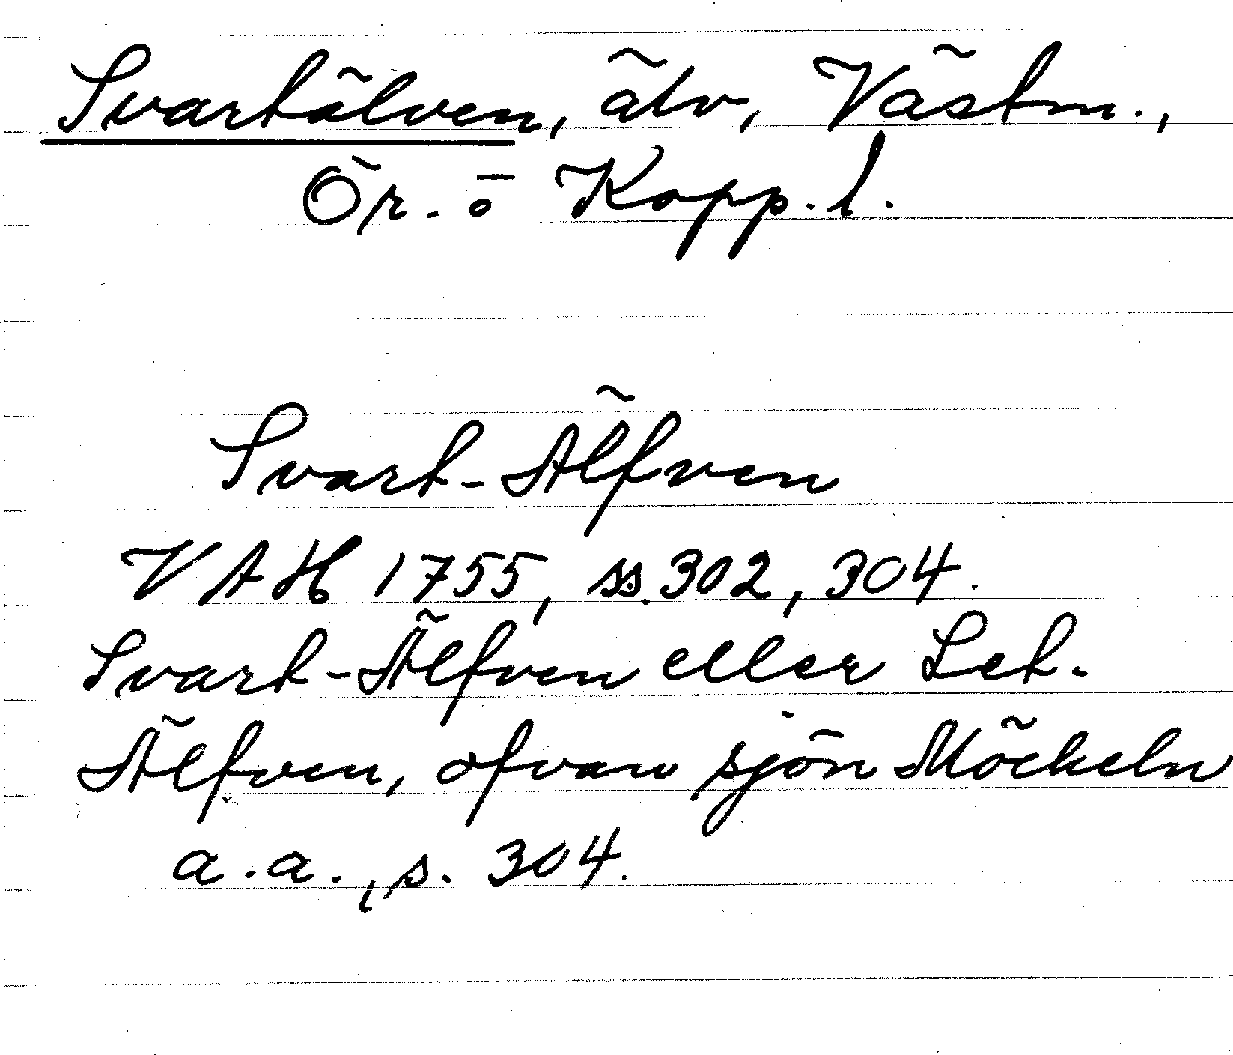 Svartälven, älv, Västm.,
Ör. o Kopp. l.
Svart-Älfven
VAH 1755, ss. 302, 304.
Svart-Älfven eller Let-
Älfven, ofvan sjön Möckeln
a.a., s. 304.